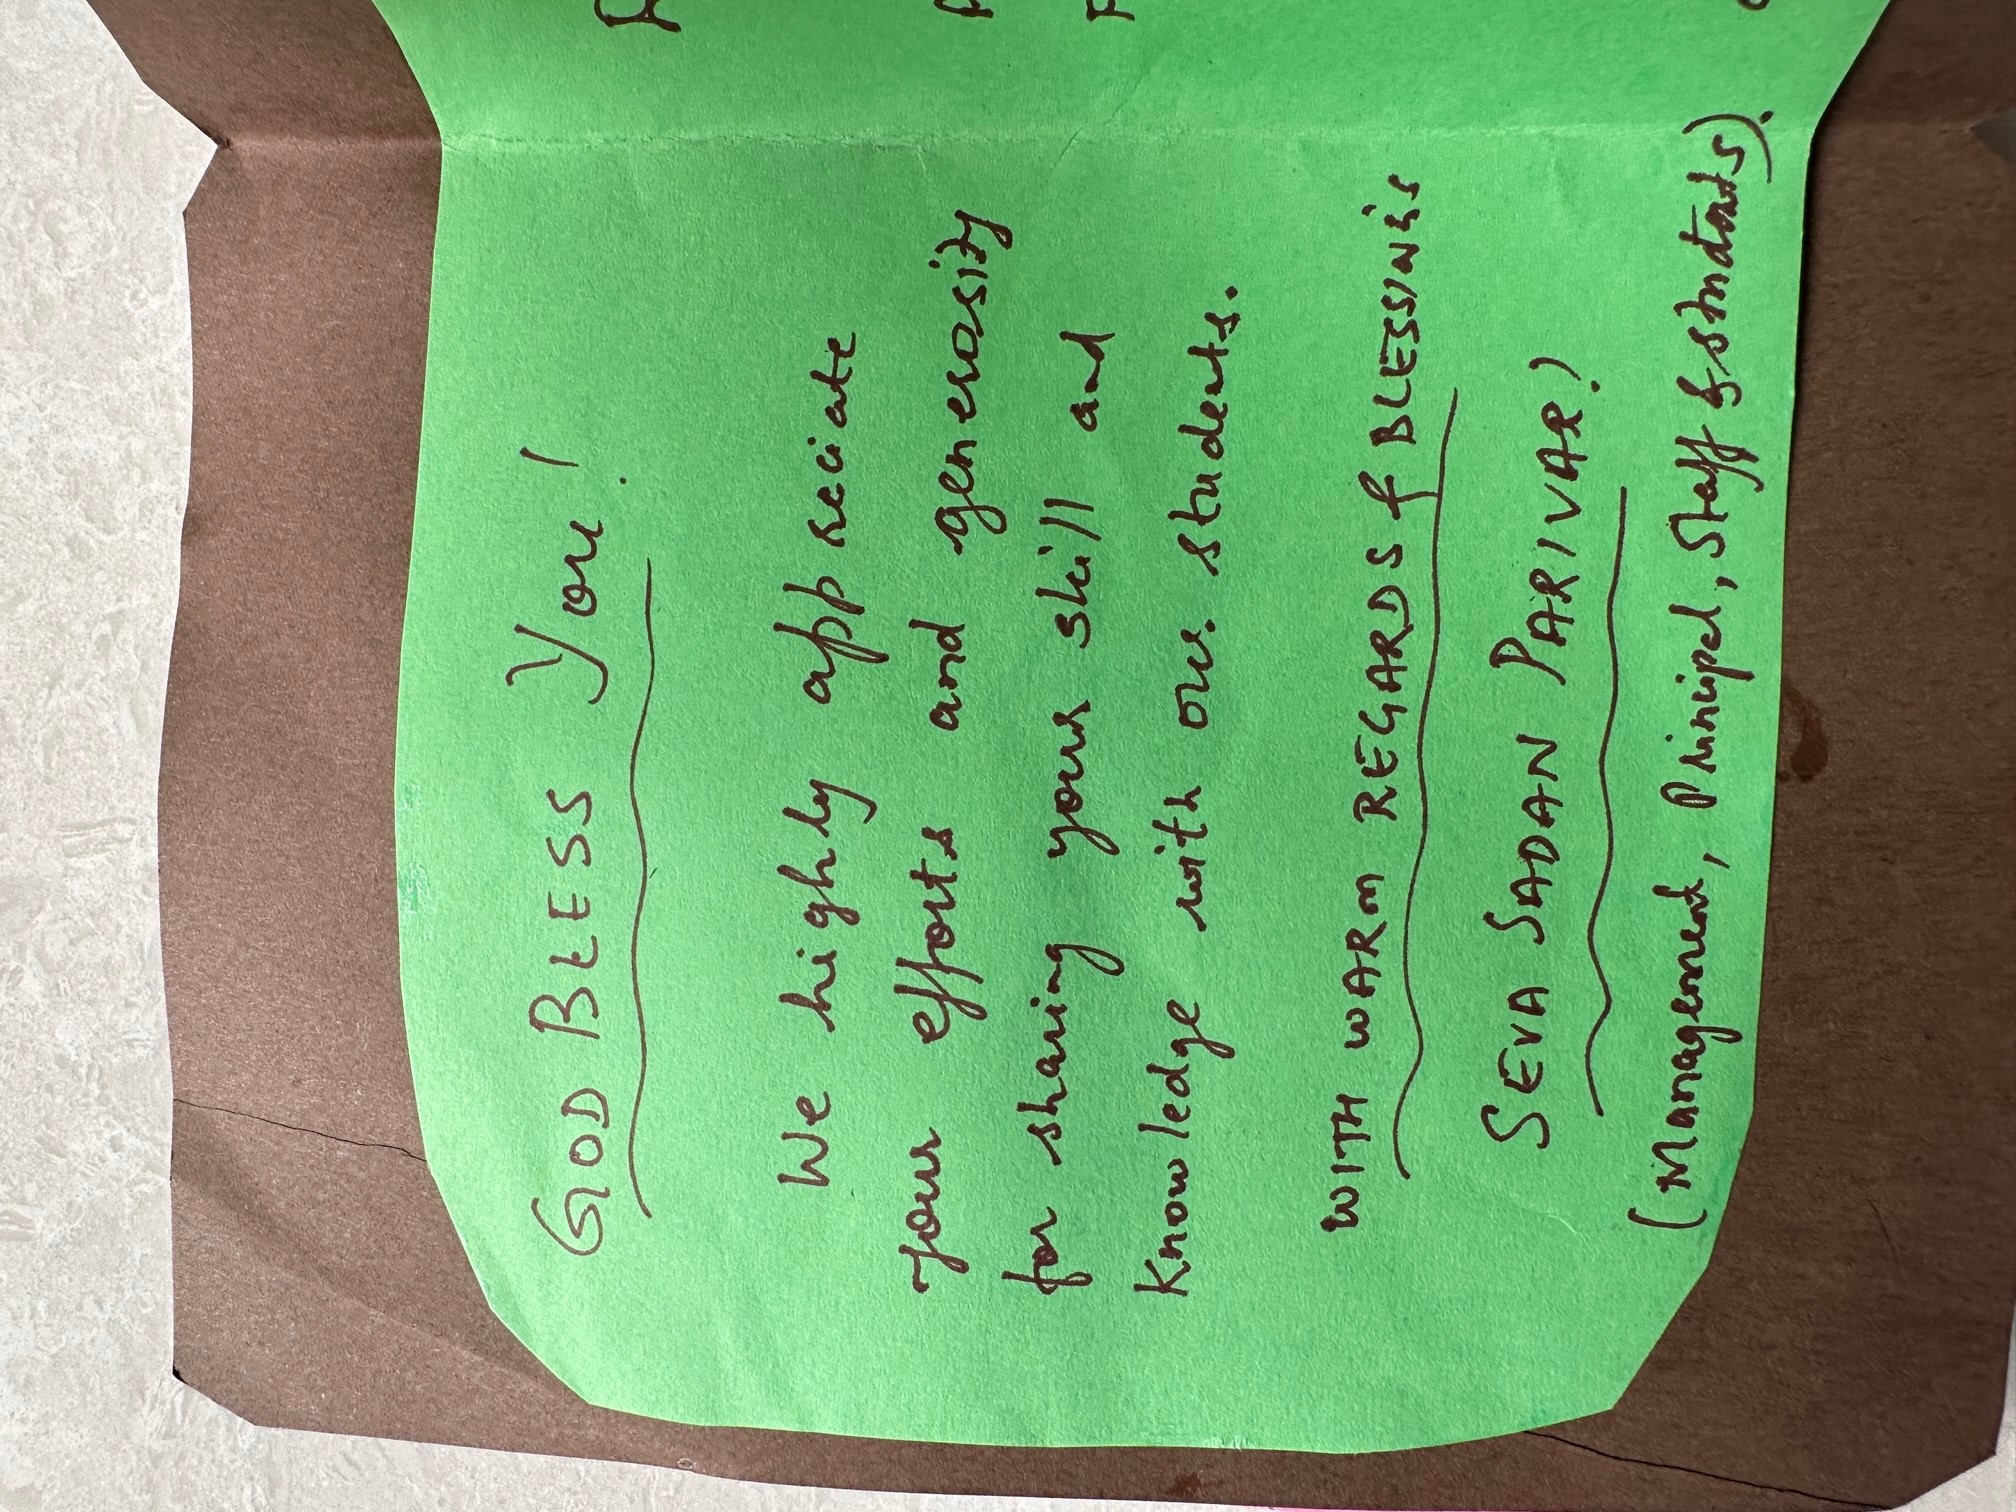 GOD BLESS You!
We highly appreciate
your efforts and generosity
for sharing your skill and
knowledge with our students.
WITH WARM REGARDS & BLESSINGS
SEVA SADAN PARIVAR!
(Management, Principal, Staff & students).